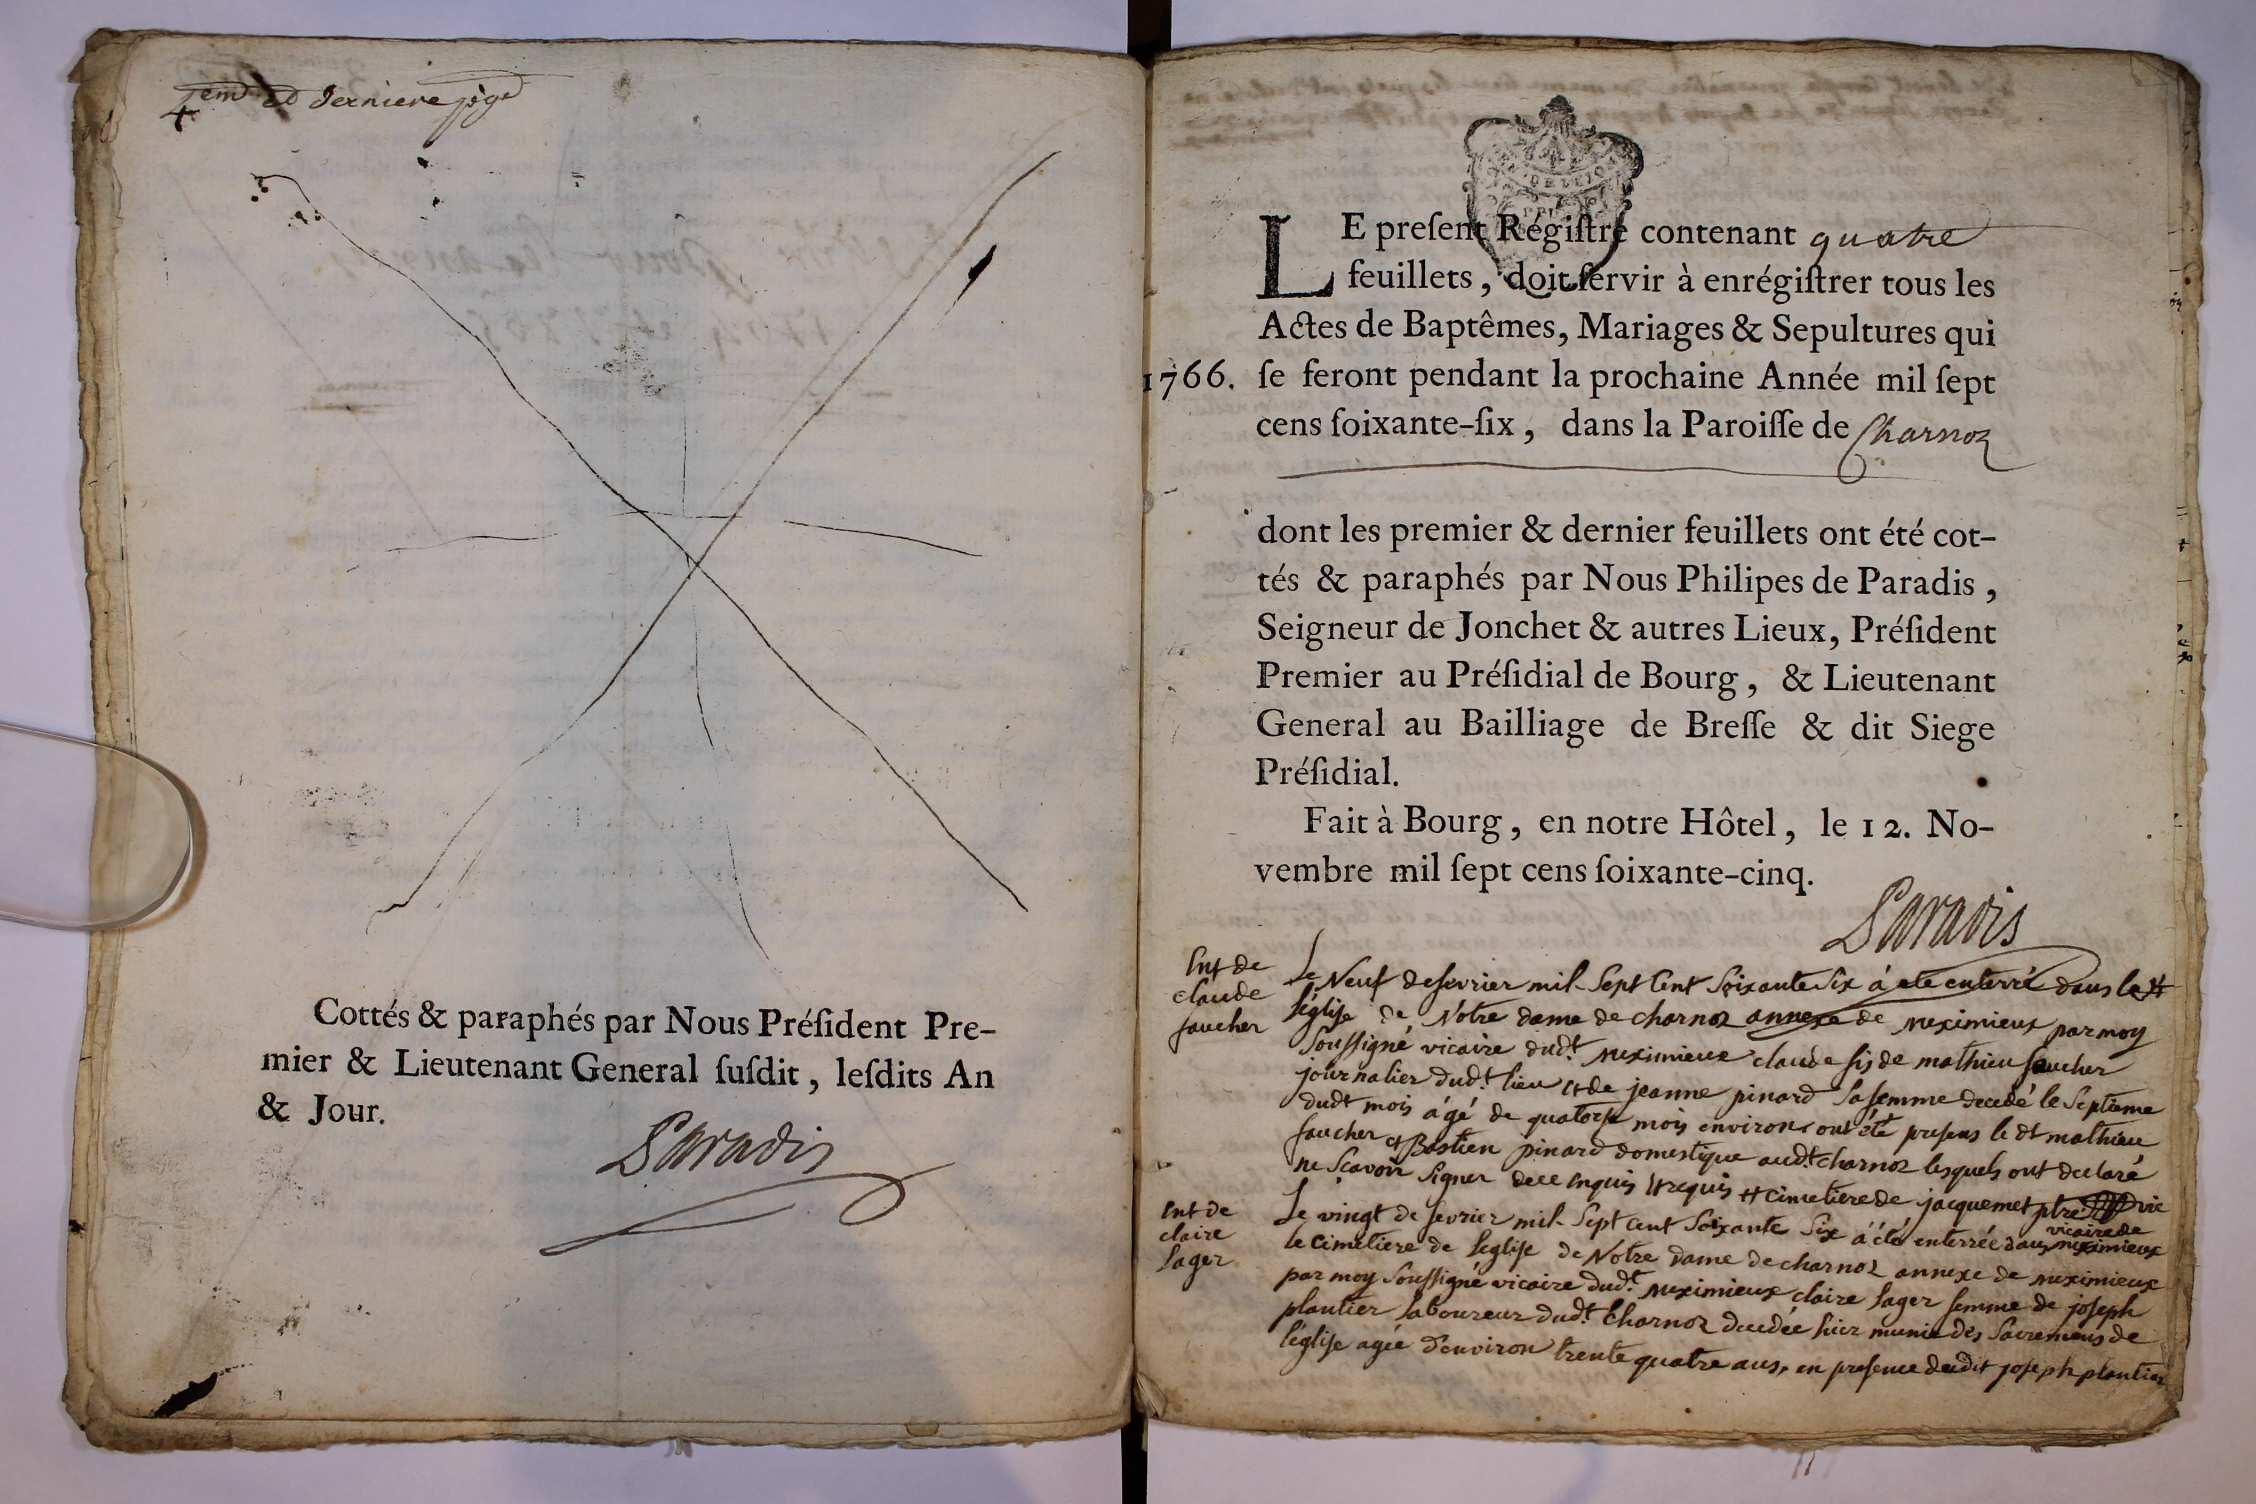 4eme et derniere page
Cottés & paraphés par Nous Préſident Pre-
mier & Lieutenant General ſuſdit, leſdits An
& Jour.
Paradis
LE preſent Régiſtre contenant quatre
feuillets, doit ſervir à enrégiſtrer tous les
Actes de Baptêmes, Mariages & Sepultures qui
1766. ſe feront pendant la prochaine Année mil ſept
cens ſoixante-ſix, dans la Paroiſſe de Charnoz
dont les premier & dernier feuillets ont été cot-
tés & paraphés par Nous Philipes de Paradis,
Seigneur de Jonchet & autres Lieux, Préſident
Premier au Préſidial de Bourg, & Lieutenant
General au Bailliage de Breſſe & dit Siege
Préſidial.
Fait à Bourg, en notre Hôtel, le 12. No-
vembre mil ſept cens ſoixante-cinq.
Paradis
Ent de
claude
faucher
Le Neuf de fevrier mil Sept Cent Soixante Six á ete enterré dans le #
l'église de Nôtre dame de charnoz annexe de meximieux par moy
Soussigné vicaire dudt. meximieux claude fis de mathieu faucher
journalier dudt. lieu et de jeanne pinard Sa femme decedé le Septieme
dudt mois âgé de quatorse mois environ ont été presens le dt mathieu
faucher et Bastien pinard domestique audt. charnoz lesquels ont declaré
ne Scavoir Signer de ce enquis # requis # cimetiere de jacquemet ptre vic
vicaire de
meximieux
Ent de
claire
Sager
Le vingt de fevrier mil Sept cent Soixante Six á été enterrée dans
le cimetiere de l'eglise de Notre dame de charnoz annexe de meximieux
par moy Soussigné vicaire dudt. meximieux claire Sager femme de joseph
plantier laboureur dudt. Charnoz decedée hier munie des Sacremens de
l'église agée d'environ trente quatre ans, en presence dudit joseph plantier